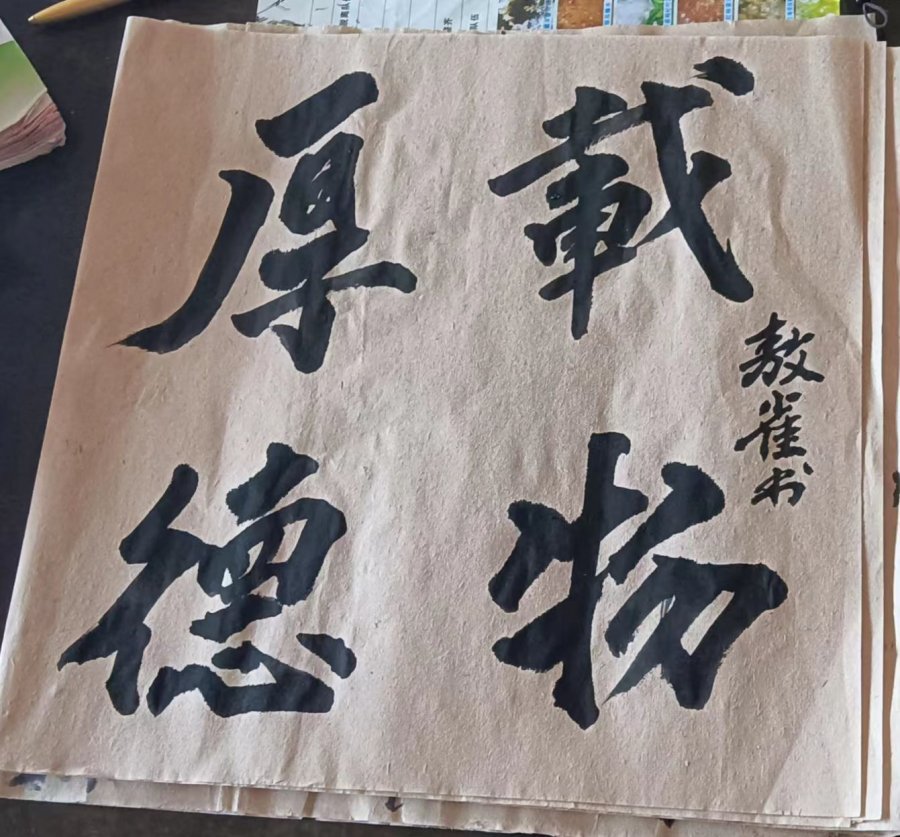 厚德
載物
敖雀书